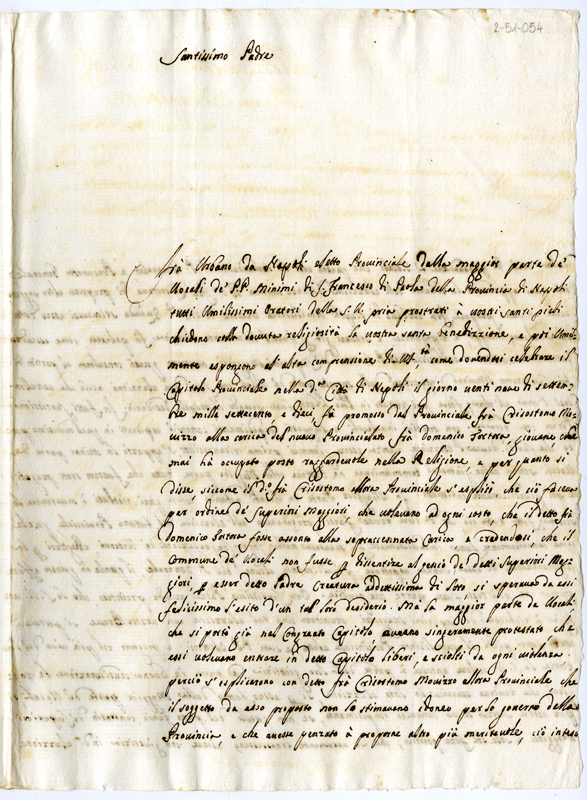 2-51-054
Santissimo Padre
Frà Urbano da Napoli eletto Provinciale dalla maggior parte de'
Vocali de' PP. Minimi di S. Francesco di Paola della Provincia di Napoli
tutti Umilissimi Oratori della S. V. pria prostrati à vostri santi piedi
chiedono colla dovuta religiosità la vostra santa benedizzione, e poi Umil-
mente espongono all'alta comprensione di come dovendosi celebrare il
Capitolo Provinciale nella d.ª Città di Napoli il giorno venti nove di settem-
bre mille settecento e dieci fù promosso dal Provinciale frà Crisostomo Mo-
vizzo alla carica del nuovo Provincialato frà Domenico Tortora giovane, che
mai hà occupato posto raguardevole nella Religione, e per quanto si
disse siccome il d.º frà Crisostomo allora Provinciale s'esplicò, che ciò faceva
per ordine de' Superiori Maggiori, che volevano ad ogni costo, che il detto frà
Domenico Tortora fosse assonto alla sopraccennata Carica e credendosi, che il
Commune de' Vocali non fusse p dissentire al genio de detti Superiori Mag-
giori, p esser detto Padre Creatura addettissima di loro si speravano essi
felicissimo l'esito d'un tal loro desiderio. Mà la maggior parte de Vocali,
che si portò già nel Congregato Capitolo, avevano sinceramente protestato, che
essi volevano entrare in detto Capitolo liberi, e sciolti da ogni violenza.
perciò s'esplicarono con detto frà Crisostomo Movizzo allora Provinciale, che
il soggetto da esso proposto non lo stimavano idoneo per lo governo della
Provincia, e che avesse penzato à proporne altro più meritevole, ciò inteso